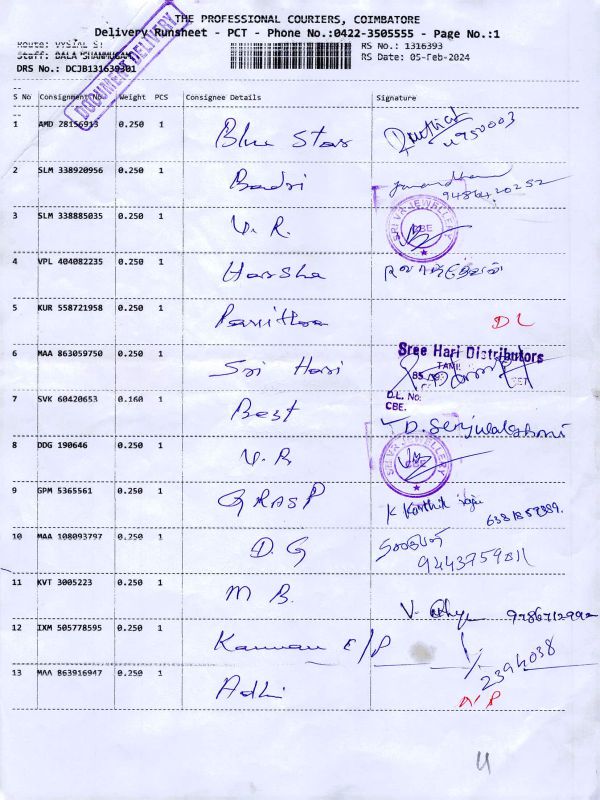 THE PROFESSIONAL COURIERS, COIMBATORE
Delivery Runsheet - PCT - Phone No.:0422-3505555 - Page No.:1
Route: VYSIAL ST
RS No.: 1316393
Staff: BALA SHANMUGAM
RS Date: 05-Feb-2024
DRS No.: DCJB131639301
DOCUMENT DELIVERY
S No Consignment No Weight PCS Consignee Details Signature
1 AMD 28156913 0.250 1 Blue Star
2 SLM 338920956 0.250 1 Badri 9486420252
3 SLM 338885035 0.250 1 V. R. SRI VR JEWELLERY CBE
4 VPL 404082235 0.250 1 Harsha
5 KUR 558721958 0.250 1 Pavithra DL
6 MAA 863059750 0.250 1 Sri Hari Sree Hari Distributors
D.L. No:
CBE.
7 SVK 60420653 0.160 1 Best
8 DDG 190646 0.250 1 V. R SRI VR JEWELLERY CBE
9 GPM 5365561 0.250 1 GRASP K Karthik
10 MAA 108093797 0.250 1 D. G
11 KVT 3005223 0.250 1 M B. 9786712992
12 IXM 505778595 0.250 1 Kannan E/P 2394038
13 MAA 863916947 0.250 1 Adhi N/S